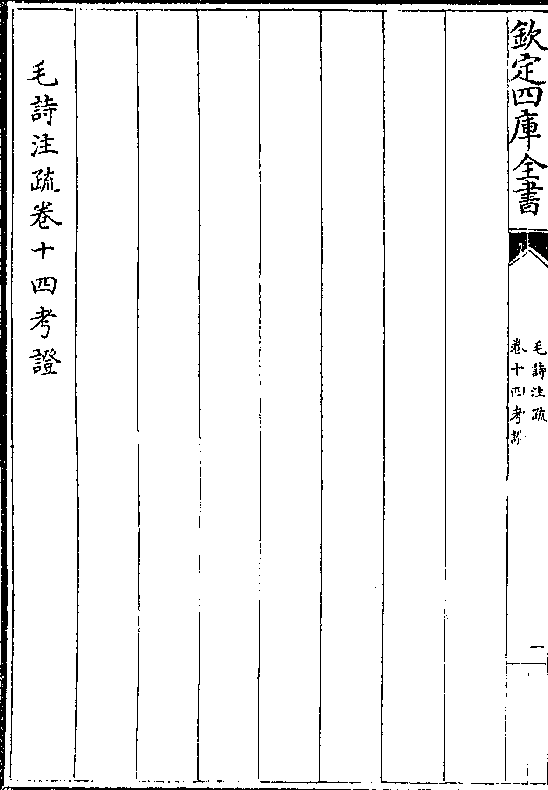 欽定四庫全書
毛詩注疏
卷十四考證
一
毛詩注疏卷十四考證